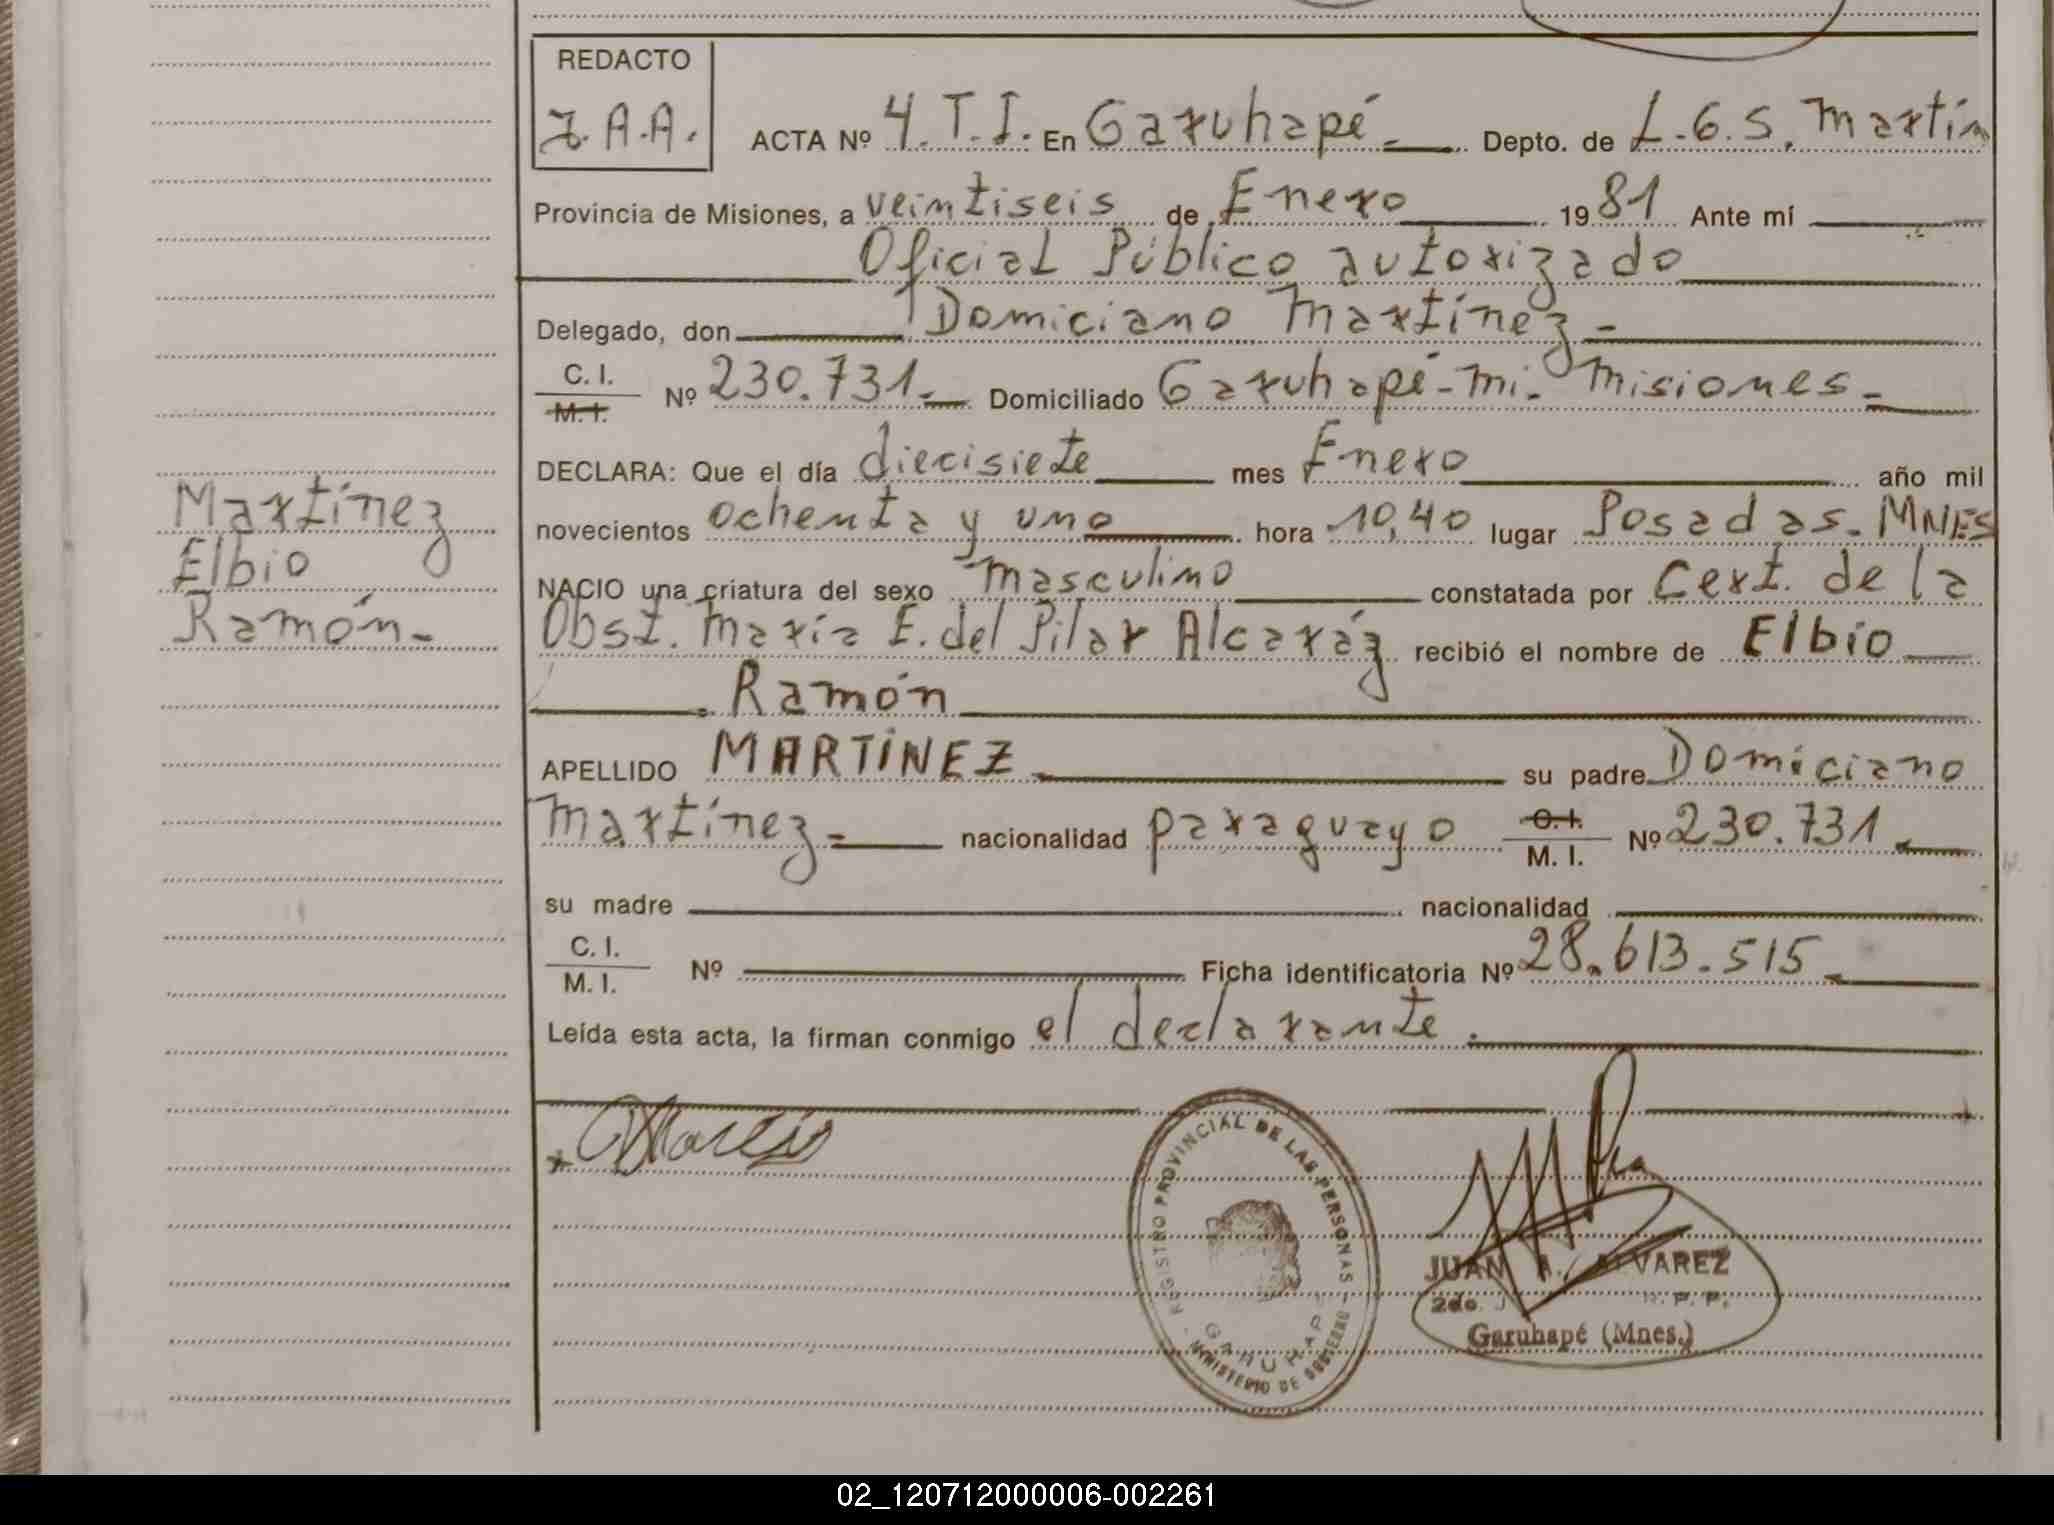 REDACTO
J. A. A.
ACTA Nº 4. T. I. En Garuhapé - Depto. de L. G. S. Martín
Provincia de Misiones, a veintiseis de Enero 1981 Ante mí
Oficial Público autorizado
Delegado, don Domiciano Martínez -
C. I.
M. I.
Nº 230.731.- Domiciliado Garuhapé-mi. Misiones.-
DECLARA: Que el día diecisiete mes Enero año mil
novecientos ochenta y uno hora 10,40 lugar Posadas. MNES
NACIO una criatura del sexo masculino constatada por Cert. de la
Obst. María E. del Pilar Alcaráz recibió el nombre de Elbio
Ramón
APELLIDO MARTÍNEZ su padre Domiciano
Martínez - nacionalidad paraguayo C. I.
M. I.
Nº 230.731.
su madre nacionalidad
C. I.
M. I.
Nº Ficha identificatoria Nº 28.613.515
Leída esta acta, la firman conmigo el declarante.
Martínez
Elbio
Ramón-
REGISTRO PROVINCIAL DE LAS PERSONAS
GARUHAPE
MINISTERIO DE GOBIERNO
JUAN A. ALVAREZ
2do. J R. P. P.
Garuhapé (Mnes.)
02_120712000006-002261